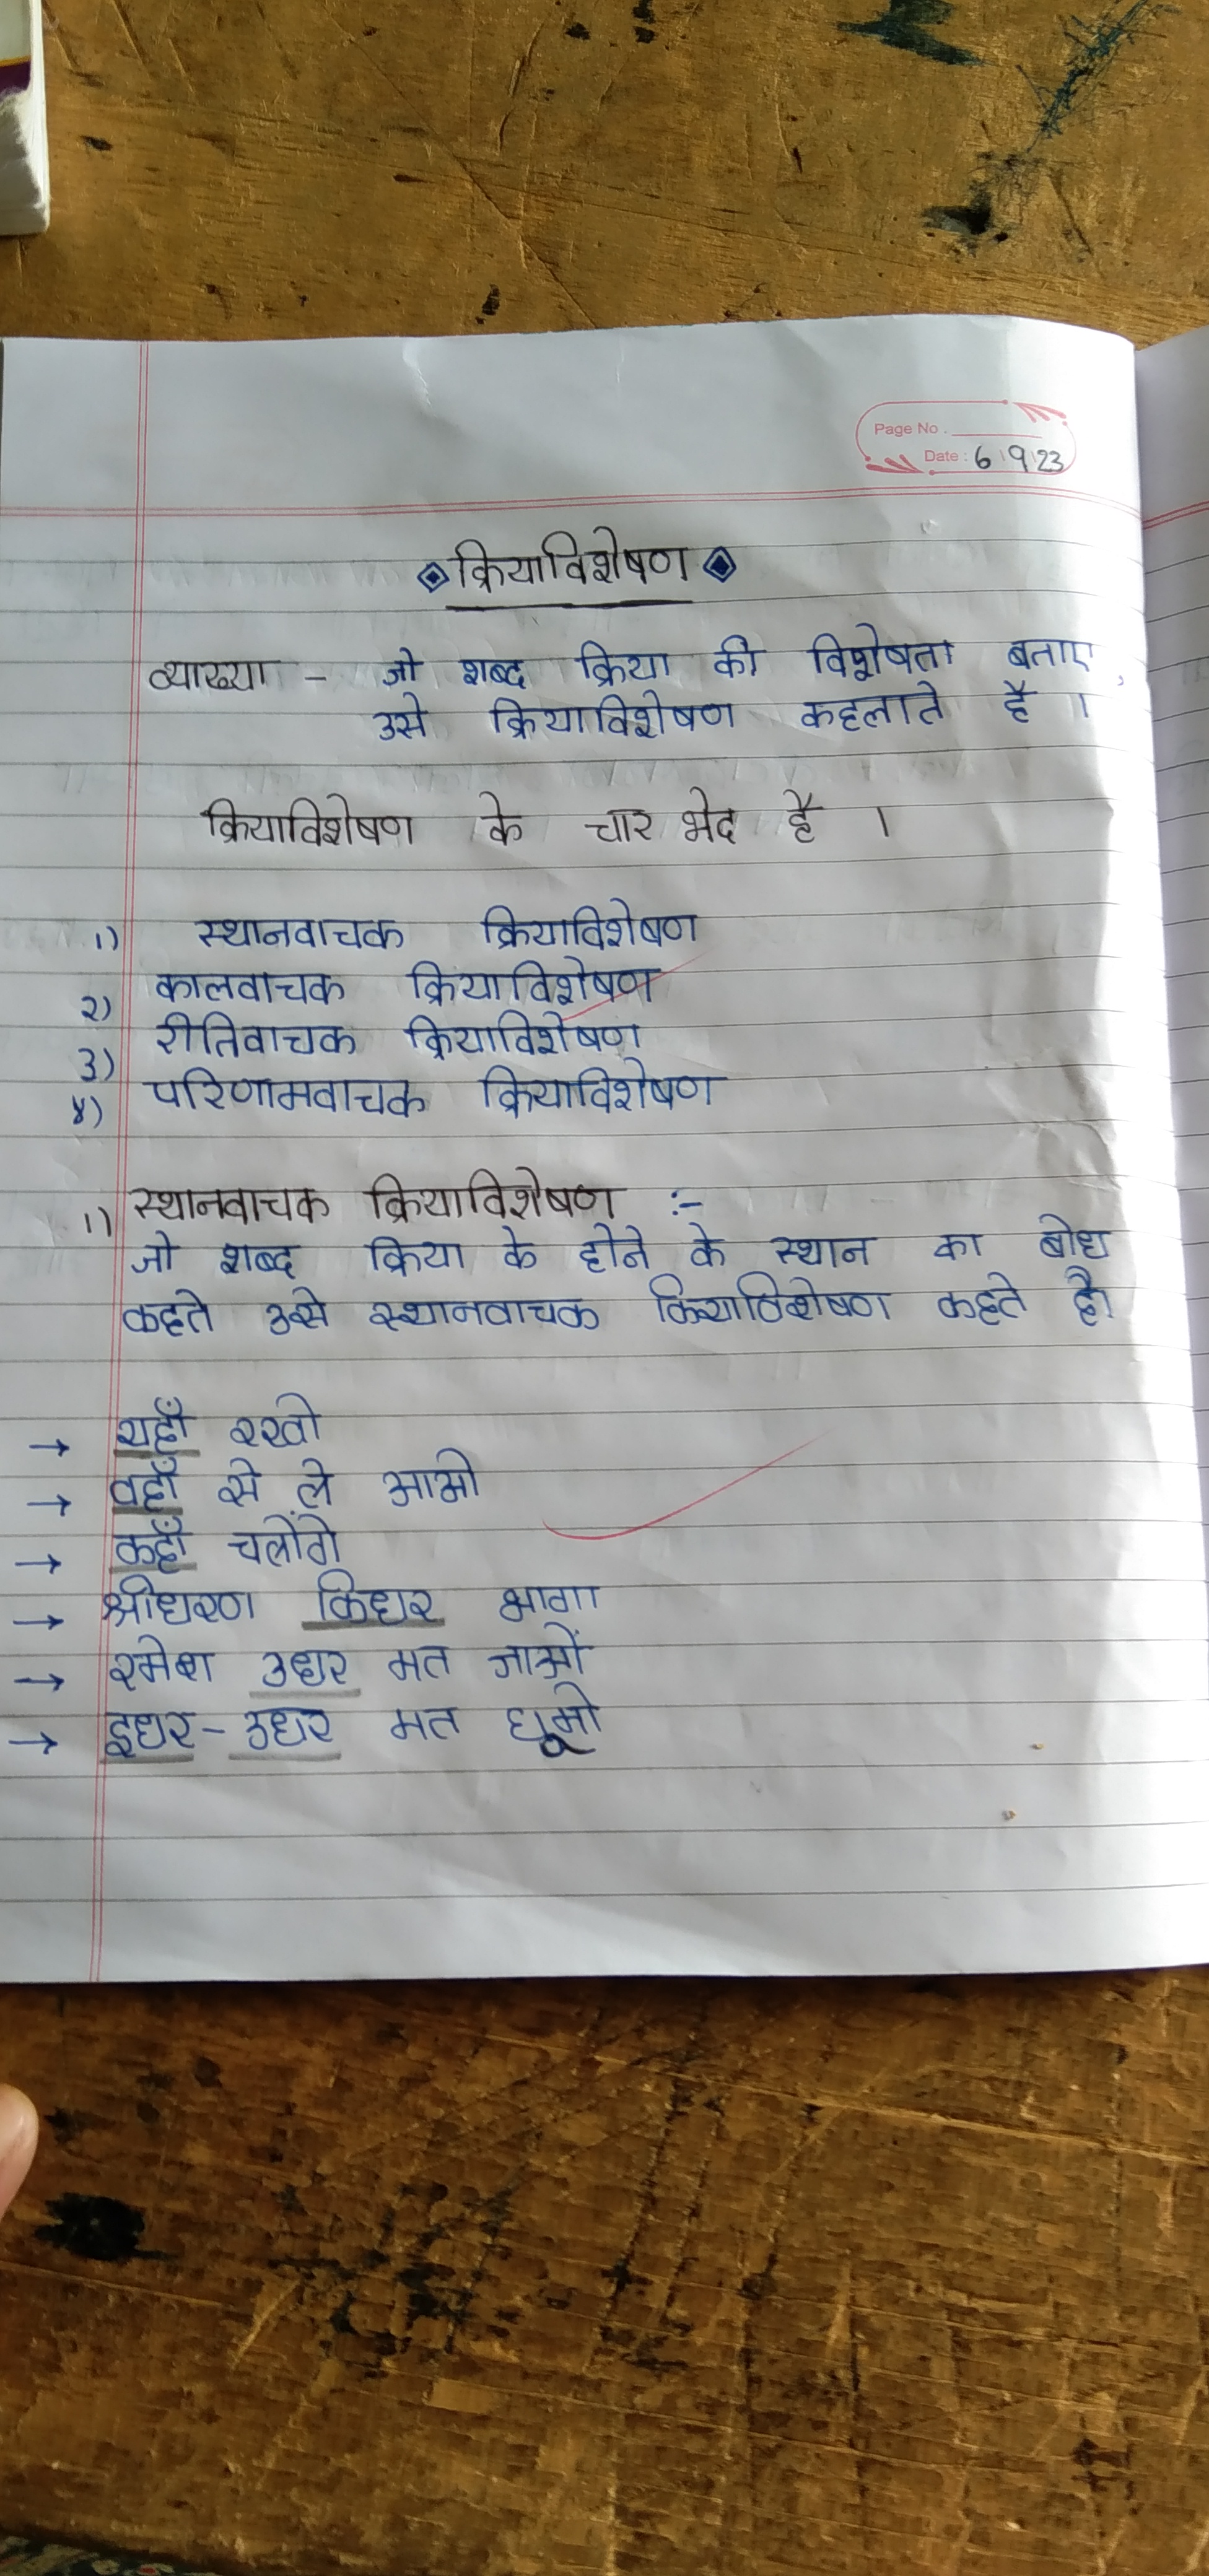 Page No.
Date : 6 9 23
क्रियाविशेषण
व्याख्या - जो शब्द क्रिया की विशेषता बताए,
उसे क्रियाविशेषण कहलाते है ।
क्रियाविशेषण के चार भेद है ।
१) स्थानवाचक क्रियाविशेषण
२) कालवाचक क्रियाविशेषण
३) रीतिवाचक क्रियाविशेषण
४) परिणामवाचक क्रियाविशेषण
१) स्थानवाचक क्रियाविशेषण :-
जो शब्द क्रिया के होने के स्थान का बोध
कहते उसे स्थानवाचक क्रियाविशेषण कहते है।
→ यहाँ रखो
→ वहाँ से ले आओ
→ कहाँ चलोंगे
→ श्रीधरण किधर भागा
→ रमेश उधर मत जाओं
→ इधर - उधर मत घूमो